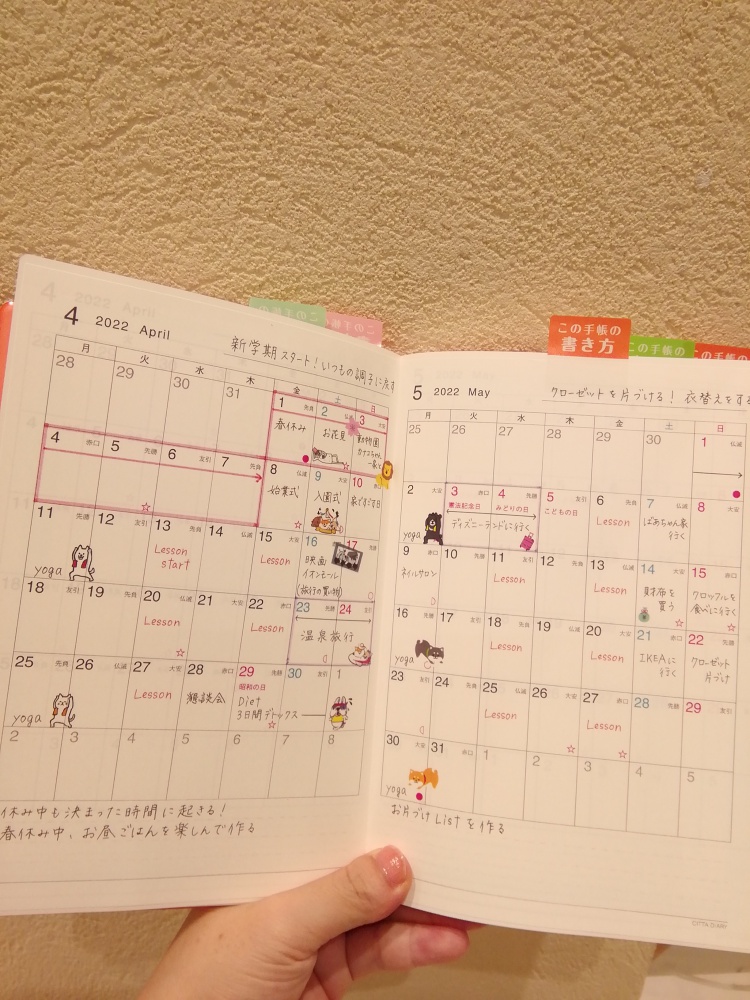 この手帳の
書き方
この手帳の
この手帳の
この
この手帳
4 2022 April
新学期スタート！いつもの調子に戻す
月 火 水 木 金 土 日
28 29 30 31 1 先負 2 仏滅 3 大安
春休み お花見 動物園
カナコちゃん
一家と
4 赤口 5 先勝 6 友引 7 先負 8 仏滅 9 大安 10 赤口
始業式 入園式 家ですごす日
11 先勝 12 友引 13 先負 14 仏滅 15 大安 16 17
yoga Lesson start Lesson 映画
イオンモール
(旅行の買い物)
18 友引 19 先負 20 仏滅 21 大安 22 赤口 23 先勝 24 友引
Lesson Lesson 温泉旅行
25 先負 26 仏滅 27 大安 28 赤口 29 先勝 30 友引 1
昭和の日
yoga Lesson 懇談会 Diet
3日間デトックス
2 3 4 5 6 7 8
休み中も決まった時間に起きる！
春休み中、お昼ごはんを楽しんで作る
5 2022 May
クローゼットを片づける！ 衣替えをする
月 火 水 木 金 土 日
25 26 27 28 29 30 1 仏滅
2 大安 3 赤口 4 先勝 5 友引 6 先負 7 仏滅 8 大安
憲法記念日 みどりの日 こどもの日
yoga ディズニーランドに行く Lesson ばあちゃん家
行く
9 赤口 10 先勝 11 友引 12 先負 13 仏滅 14 大安 15 赤口
ネイルサロン Lesson Lesson 財布を
買う クロッフルを
食べに行く
16 先勝 17 友引 18 先負 19 仏滅 20 大安 21 赤口 22 先勝
yoga Lesson Lesson IKEAに
行く クローゼット
片づけ
23 友引 24 先負 25 仏滅 26 大安 27 赤口 28 先勝 29 友引
Lesson Lesson
30 大安 31 赤口 1 2 3 4 5
yoga
お片づけListを作る
©CITTA DIARY